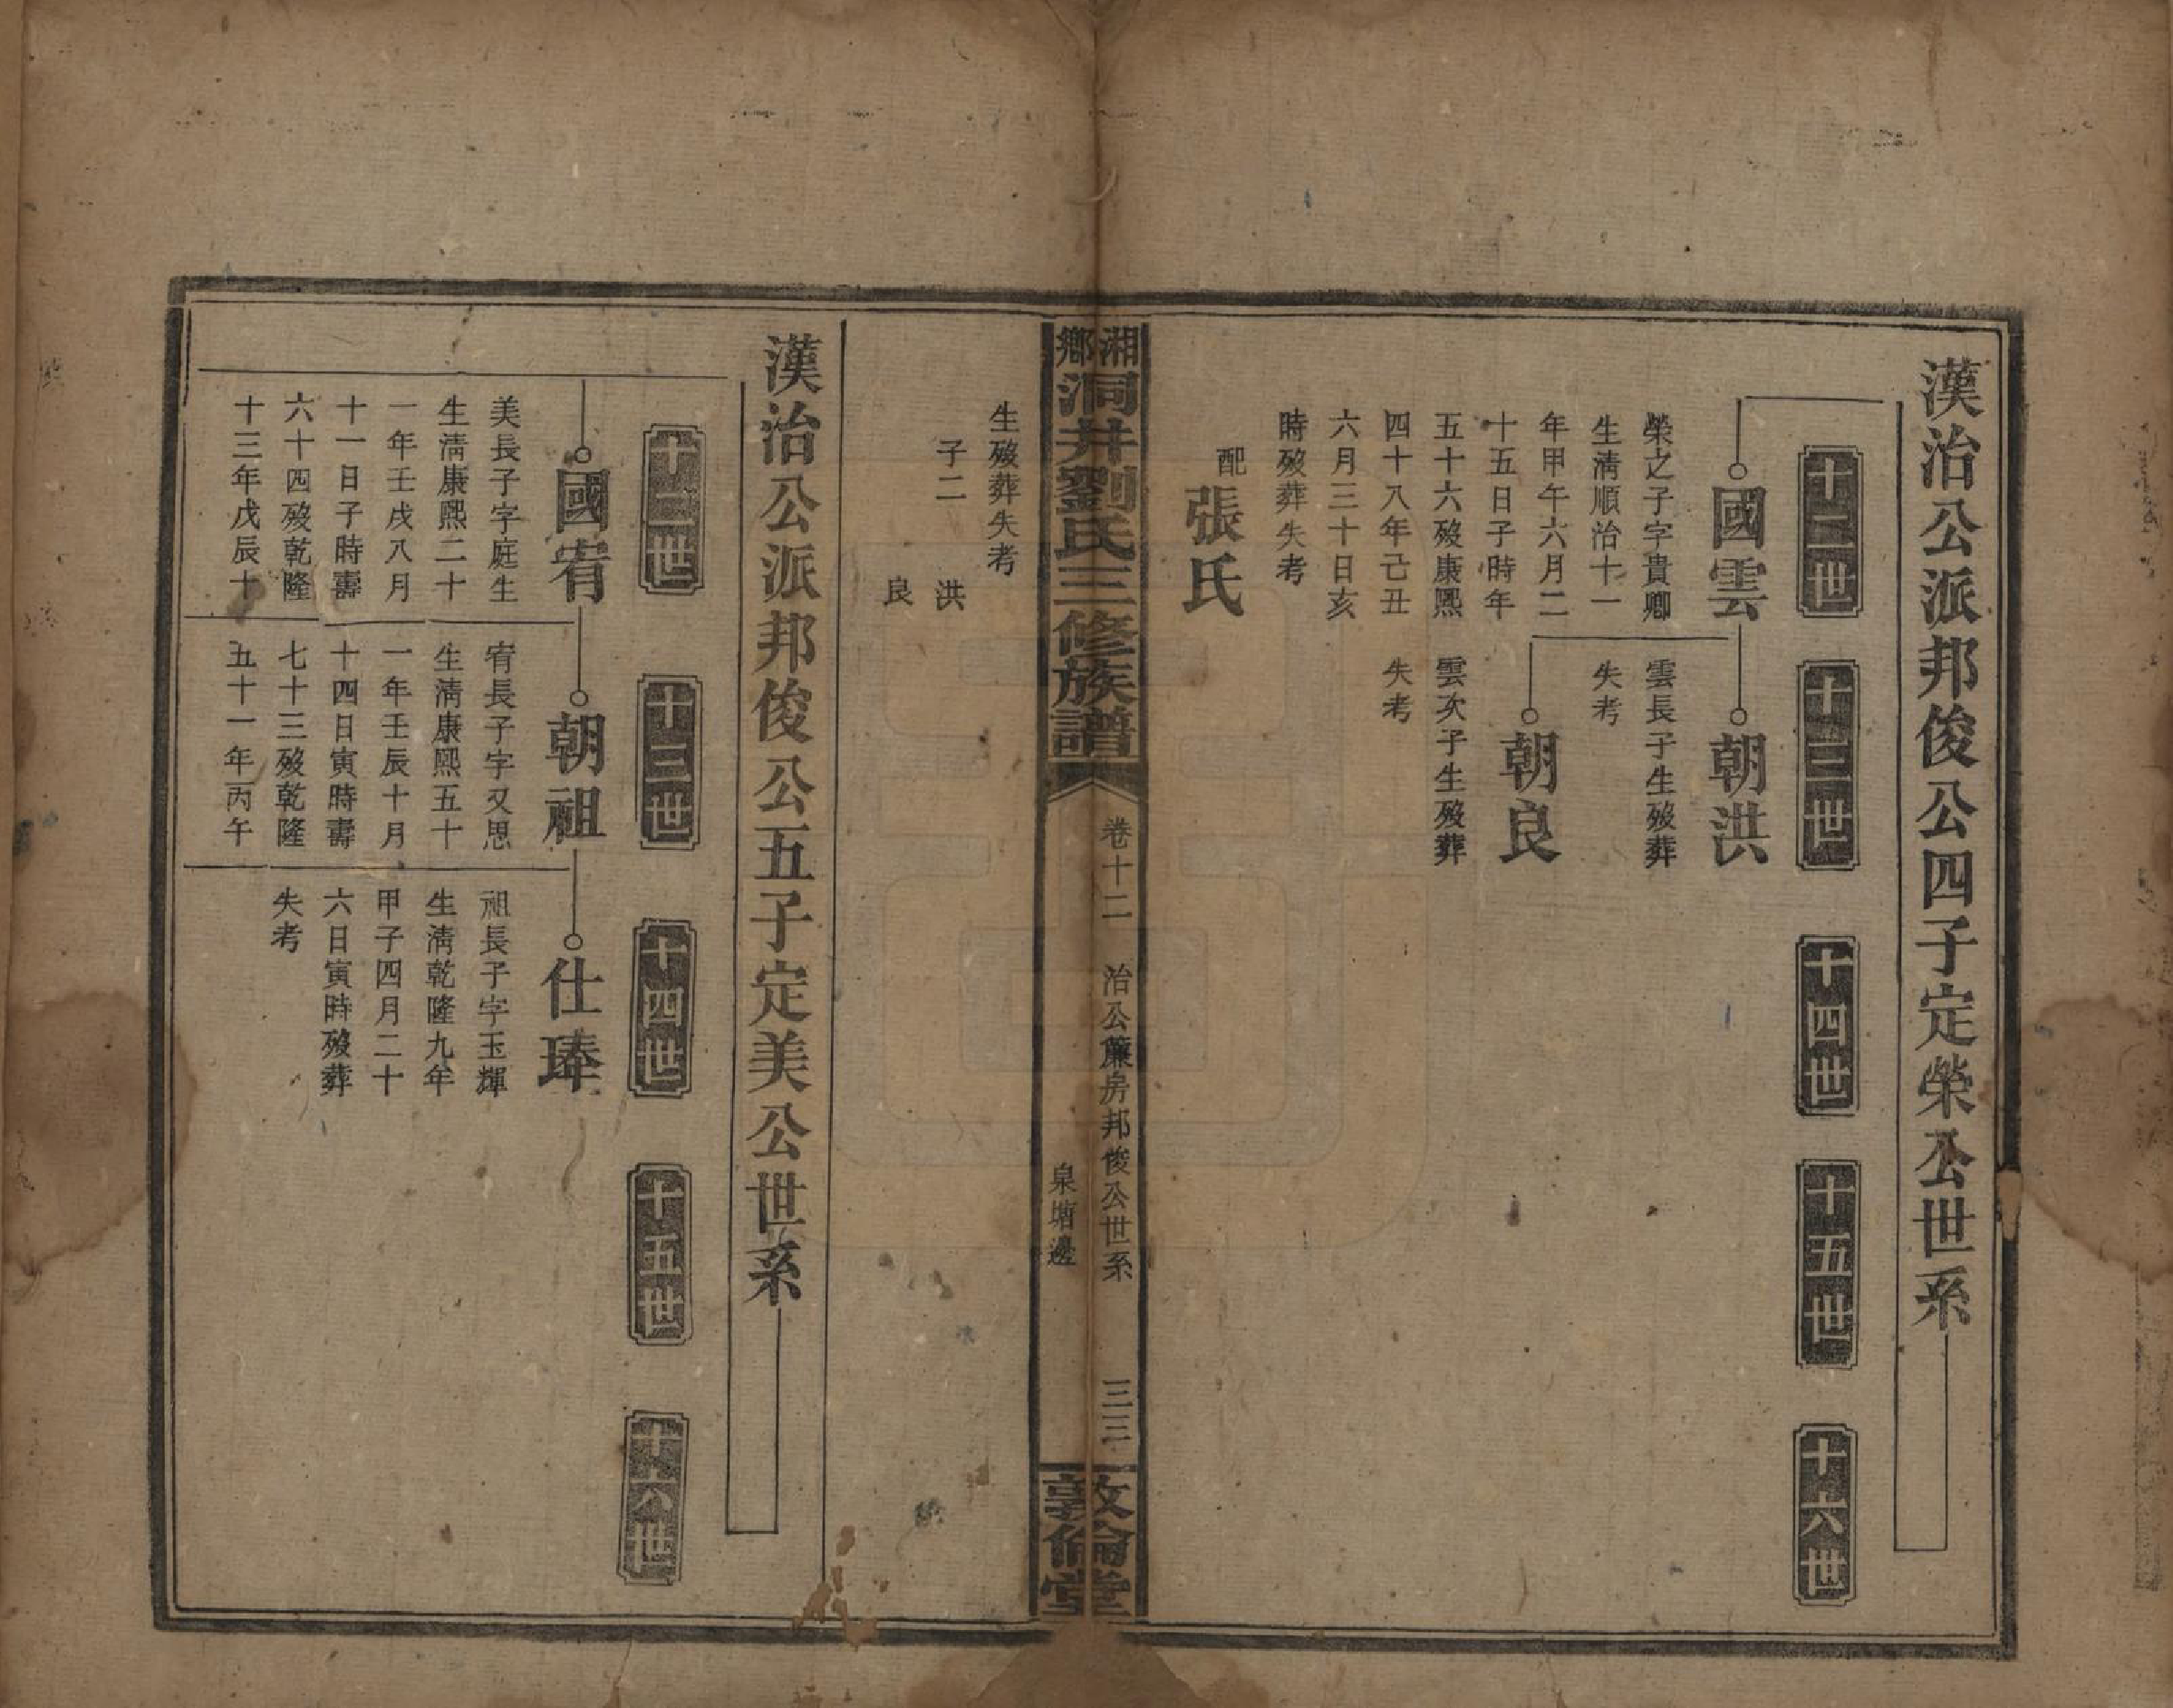 漢治公派邦俊公四子定榮公世系
十二世
十三世
十四世
十五世
十六世
國雲
榮之子字貴卿
生淸順治十一
年甲午六月二
十五日子時年
五十六歿康熙
四十八年己丑
六月三十日亥
時歿葬失考
配張氏
朝洪
雲長子生歿葬
失考
朝良
雲次子生歿葬
失考
湘鄉洞井劉氏三修族譜
卷十二
治公廉房邦俊公世系
泉塘邊
三三
敦倫堂
生歿葬失考
子二
洪
良
漢治公派邦俊公五子定美公世系
十二世
十三世
十四世
十五世
十六世
國宥
美長子字庭生
生淸康熙二十
一年壬戌八月
十一日子時壽
六十四歿乾隆
十三年戊辰十
朝祖
宥長子字又思
生淸康熙五十
一年壬辰十月
十四日寅時壽
七十三歿乾隆
五十一年丙午
仕琫
祖長子字玉輝
生淸乾隆九年
甲子四月二十
六日寅時歿葬
失考